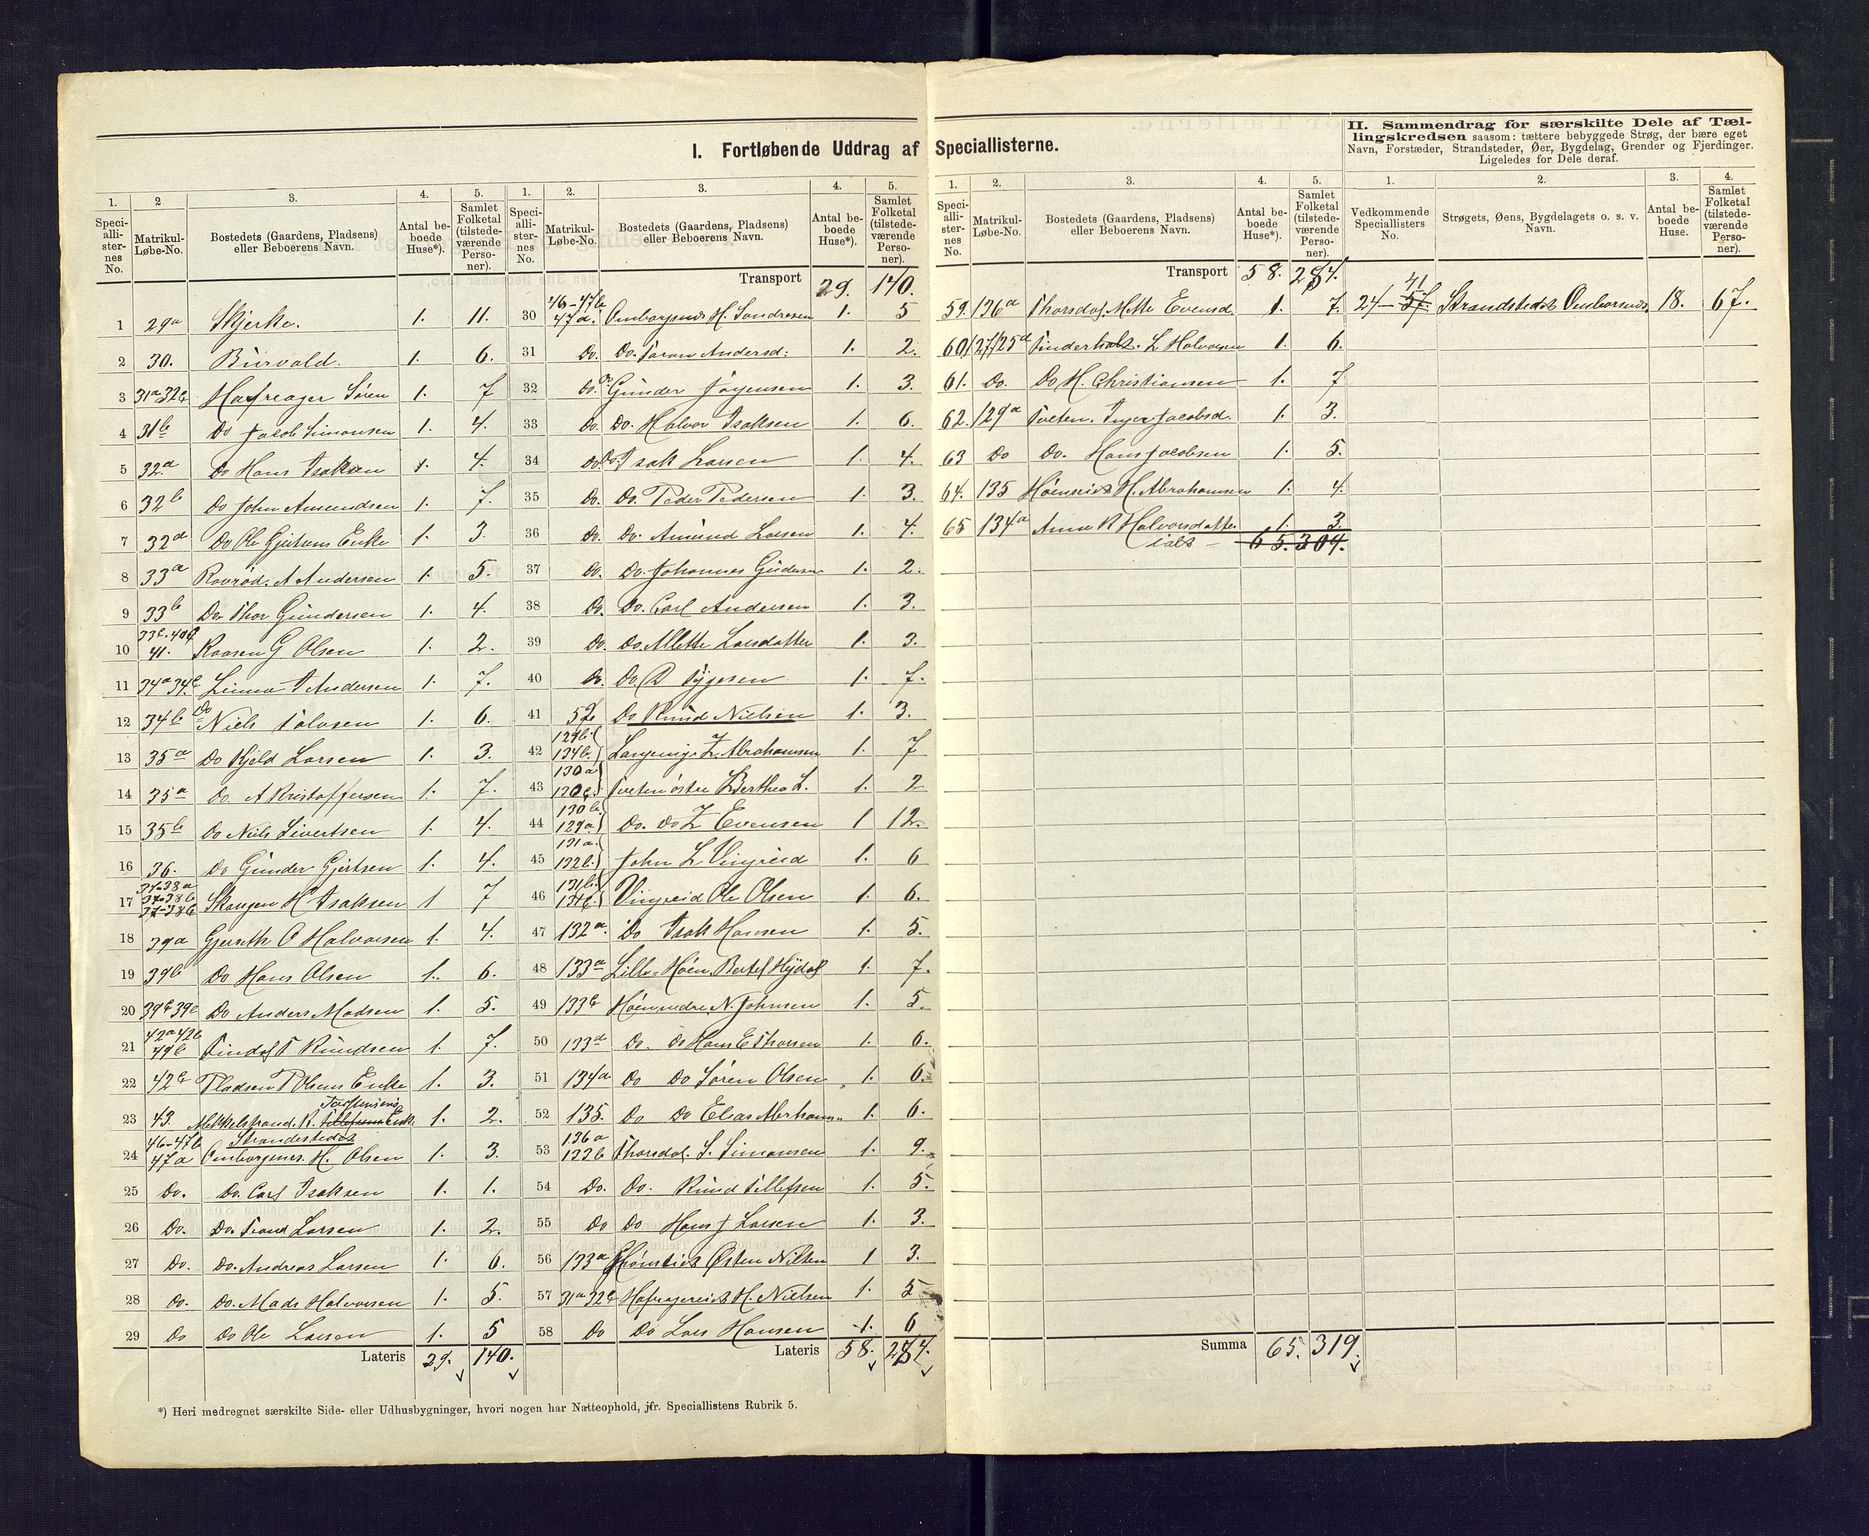 I. Fortløbende Uddrag af Speciallisterne.
1. 2 3. 4. 5.
Speciallisternes No. Matrikul-Løbe-No. Bostedets (Gaardens, Pladsens) eller Beboerens Navn. Antal beboede Huse*). Samlet Folketal (tilstedeværende Personer).
1 29a Skjerke. 1. 11.
2 30. Burvald. 1. 6.
3 31a 32c Hafreager Søren 1. 7
4 31b Do Jacob Simonsen 1. 4.
5 32a Do Hans Isaksen 1. 4.
6 32b Do John Amundsen 1. 7.
7 32d Do Ole Gjertsens Enke 1. 3.
8 33a Ravrød. A Andersen 1. 5.
9 33b Do Thor Gundersen 1. 4.
10 33c-40c 41. Raasen G Olsen 1. 2.
11 34a 34c T Andersen 1. 7.
12 34b Do Niels Tolvsen 1. 6.
13 35a Do Kjeld Larsen 1. 3.
14 35a Do. A Kristoffersen 1. 7.
15 35b Do Niels Sivertsen 1. 4.
16 36. Do Gunder Gjertsen 1. 4.
17 37-38a 37-38b 37-38c Skaugen H Isaksen 1 7
18 39a Gjerseth O Halvorsen 1. 4.
19 39b Do Hans Olsen 1. 6.
20 39c 39e Do Anders Madsen 1. 5.
21 42a 42b 49b Tindol T Knudsen 1. 7.
22 42c Pladsen P Olsens Enke 1. 3.
23 43. Mekkelstrand. K. Enke 1. 2.
Strandstedet
24 46-47b 47a Omborgsnes. H. Olsen 1. 3.
25 Do. Do. Carl Isaksen 1. 1.
26 Do. Do. Larsen 1. 2.
27 Do. Do. Andreas Larsen 1. 6.
28 Do. Do. Mads Halvorsen 1. 5.
29 Do Do Ole Larsen 1. 5
Lateris 29. 140.
1. 2. 3. 4. 5.
Speciallisternes No. Matrikul-Løbe-No. Bostedets (Gaardens, Pladsens) eller Beboerens Navn. Antal beboede Huse*). Samlet Folketal (tilstedeværende Personer).
Transport 29. 140.
30 46-47b 47a. Omborgsnes H. Sondresen 1. 5
31 Do. Do. Toran Andersd: 1. 2.
32 Do. Do Gunder Jørgensen 1. 3.
33 Do. Do. Halvor Isaksen 1. 6.
34 Do Do. Isak Larsen 1. 4.
35 Do. Do. Peder Pedersen 1. 3.
36 Do. Do. Amund Larsen 1. 4.
37 Do. Do. Johannes Gundersen 1. 2.
38 Do. Do. Carl Andersen 1. 3.
39 Do. Do. Mette Larsdatter 1. 3.
40 Do. Do B Tygesen 1. 7.
41 Do Knud Nielsen 1. 3.
42 129b. 134b. Langenige Z. Abrahamsen 1. 7
43 130a 130c Tveten østre Berthea L. 1. 2
44 130b 129a Do. Do Z Evensen 1 12.
45 131a. 132b. John L Vingreid 1. 6
46 131b. Vingreid Ole Olsen 1. 6.
47 132a. Do Isak Hansen 1. 5.
48 133a Lille-Høen. Bertel Hydal 1. 7.
49 133b Høennedre N. Johnsen 1. 5.
50 133d Do. Do Hans E Thorsen 1. 6.
51 134a Do Do Søren Olsen 1. 6.
52 135. Do Do Elias Abrhams. 1. 6.
53 136a 132b Thorsdal. S. Simonsen 1. 9.
54 Do. Do. Knud Tillefsen 1. 5.
55 Do Do Hans J Larsen 1. 3.
56 133a Østen Nilsen 1 3.
57 31a 32c Hafreagereiet H. Nielsen 1. 5
58 Do Do Lars Hansen 1. 6
Lateris 58. 287.
*) Heri medregnet særskilte Side- eller Udhusbygninger, hvori nogen har Natteophold, jfr. Speciallistens Rubrik 5.
1. 2. 3. 4. 5.
Speciallisternes No. Matrikul-Løbe-No. Bostedets (Gaardens, Pladsens) eller Beboerens Navn. Antal beboede Huse*). Samlet Folketal (tilstedeværende Personer).
Transport 58. 284.
59. 136a Thorsdal. Mette Evensd. 1. 7.
60. 127/125a L Halvorsen 1. 6.
61. Do. Do H. Christiansen 1. 7
62. 129a Tveten. Inger Jacobsd. 1. 3.
63 Do Do. Hans Jacobsen 1. 5.
64. 135 Høenseiet H. Abrahamsen 1. 4.
65 134a Anne K Halvorsdatter 1. 3
ialt - 65. 304.
Summa 65. 319.
II. Sammendrag for særskilte Dele af Tællingskredsen saasom: tættere bebyggede Strøg, der bære eget
Navn, Forstæder, Strandsteder, Øer, Bygdelag, Grender og Fjerdinger.
Ligeledes for Dele deraf.
1. 2. 3. 4.
Vedkommende Speciallisters No. Strøgets, Øens, Bygdelagets o. s. v. Navn. Antal beboede Huse. Samlet Folketal (tilstedeværende Personer).
24-57 41 Strandstedet Omborsnes. 18. 67.